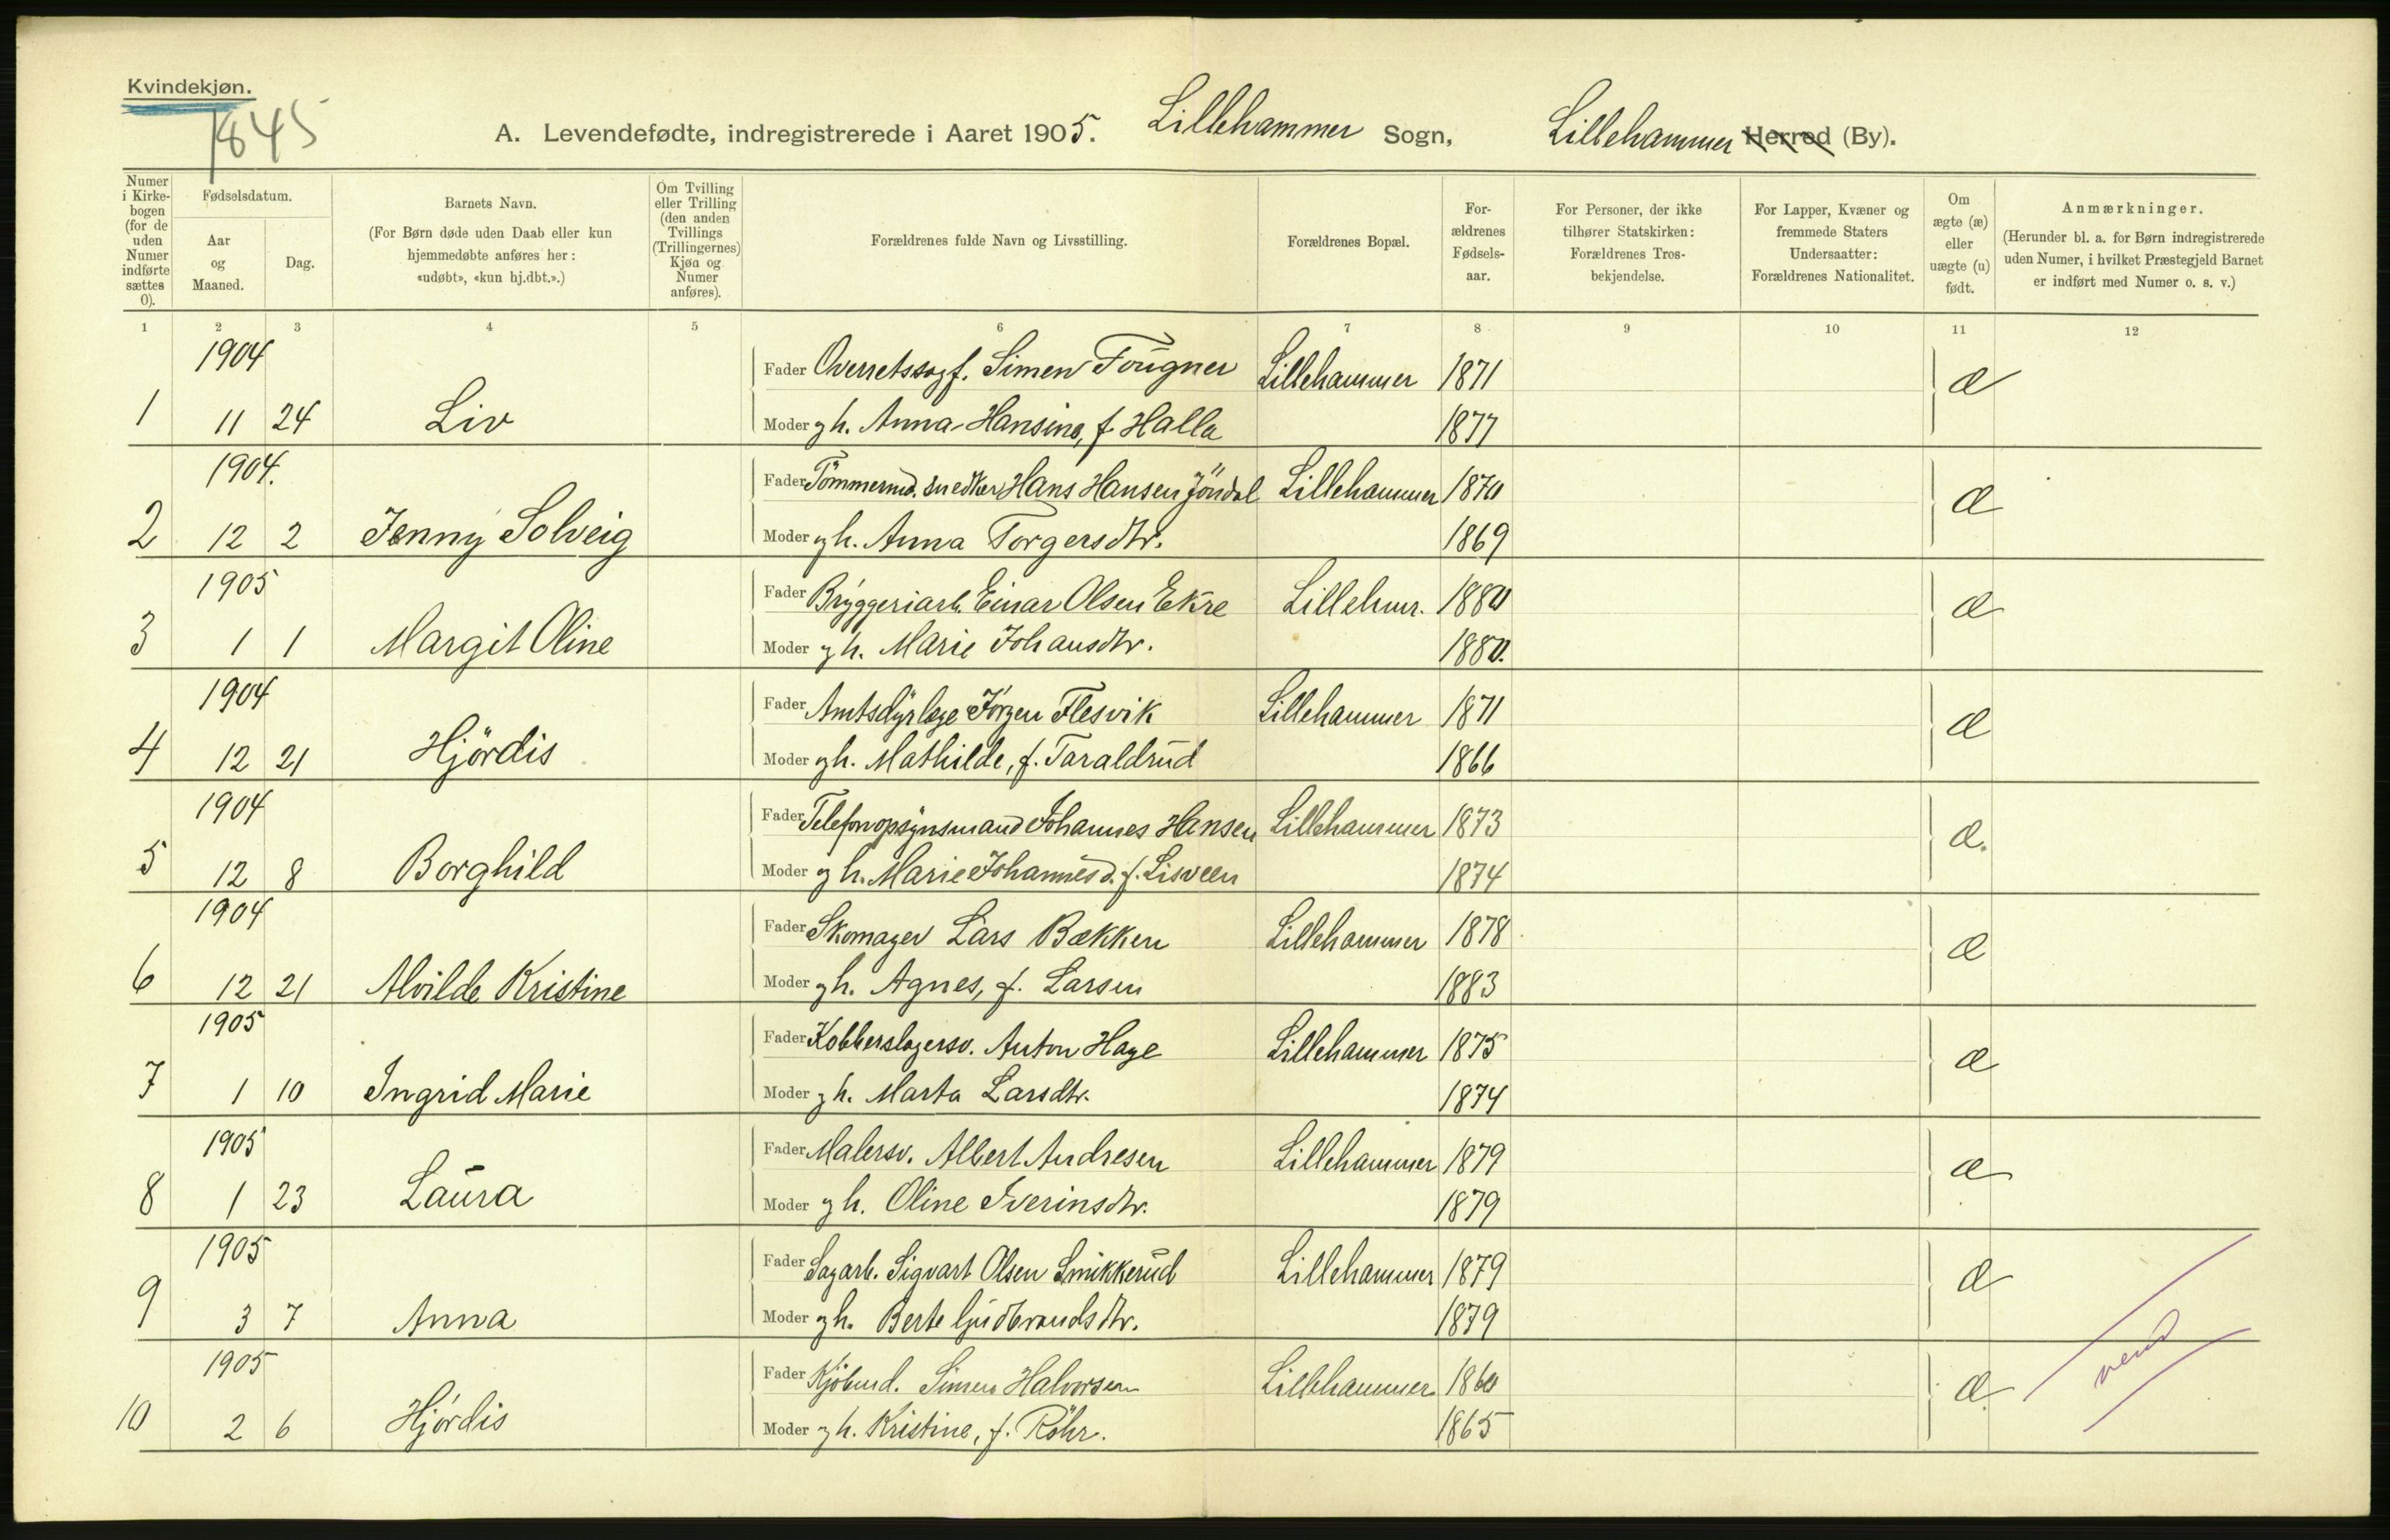 Kvindekjøn.
1845
A. Levendefødte, indregistrerede i Aaret 1905. Lillehammer Sogn, Lillehammer Herred (By).
Numer i Kirkebogen (for de uden Numer indførte sættes 0).
Fødselsdatum.
Aar og Maaned.
Dag.
Barnets Navn.
(For Børn døde uden Daab eller kun hjemmedøbte anføres her: «udøbt», «kun hj.dbt.».)
Om Tvilling eller Trilling (den anden Tvillings (Trillingernes) Kjøn og Numer anføres).
Forældrenes fulde Navn og Livsstilling.
Forældrenes Bopæl.
Forældrenes Fødselsaar.
For Personer, der ikke tilhører Statskirken: Forældrenes Trosbekjendelse.
For Lapper, Kvæner og fremmede Staters Undersaatter: Forældrenes Nationalitet.
Om ægte (æ) eller uægte (u) født.
Anmærkninger.
(Herunder bl. a. for Børn indregistrerede uden Numer, i hvilket Præstegjeld Barnet er indført med Numer o. s. v.)
1 2 3 4 5 6 7 8 9 10 11 12
1904 Fader Overretssagf. Simen Fougner Lillehammer 1871 æ
1 11 24 Liv Moder gh. Anna Hansine, f. Halla 1877
1904. Fader Tömmermd. snedker Hans Hansen Jöndal Lillehammer 1870 æ
2 12 2 Jenny Solveig Moder gh. Anna Torgersdtr. 1869
1905 Fader Bryggeriarb. Einar Olsen Ekre Lillehmr. 1880 æ
3 1 1 Margit Oline Moder gh. Marie Johansdtr. 1880.
1904 Fader Amtsdyrlæge Jörgen Flesvik Lillehammer 1871 æ
4 12 21 Hjördis Moder gh. Mathilde, f. Taraldrud 1866
1904 Fader Telefonopsynsmand Johannes Hansen Lillehammer 1873 æ.
5 12 8 Borghild Moder gh. Marie Johannesd. f. Lisveen 1874
1904 Fader Skomager Lars Bækken Lillehammer 1878 æ
6 12 21 Alvilde Kristine Moder gh. Agnes, f. Larsen 1883
1905 Fader Kobberslagersv. Anton Hage Lillehammer 1875 æ
7 1 10 Ingrid Marie Moder gh. Marta Larsdtr. 1874
1905 Fader Malersv. Albert Andresen Lillehammer 1879 æ
8 1 23 Laura Moder gh. Oline Iverinsdtr. 1879
1905 Fader Sagarb. Sigvart Olsen Smikkerud Lillehammer 1879 æ
9 3 7 Anna Moder gh. Berte Gudbrandsdtr. 1879
1905 Fader Kjöbmd. Simen Halvorsen Lillehammer 1860 æ.
10 2 6 Hjördis Moder gh. Kristine, f. Röhr. 1865
vend